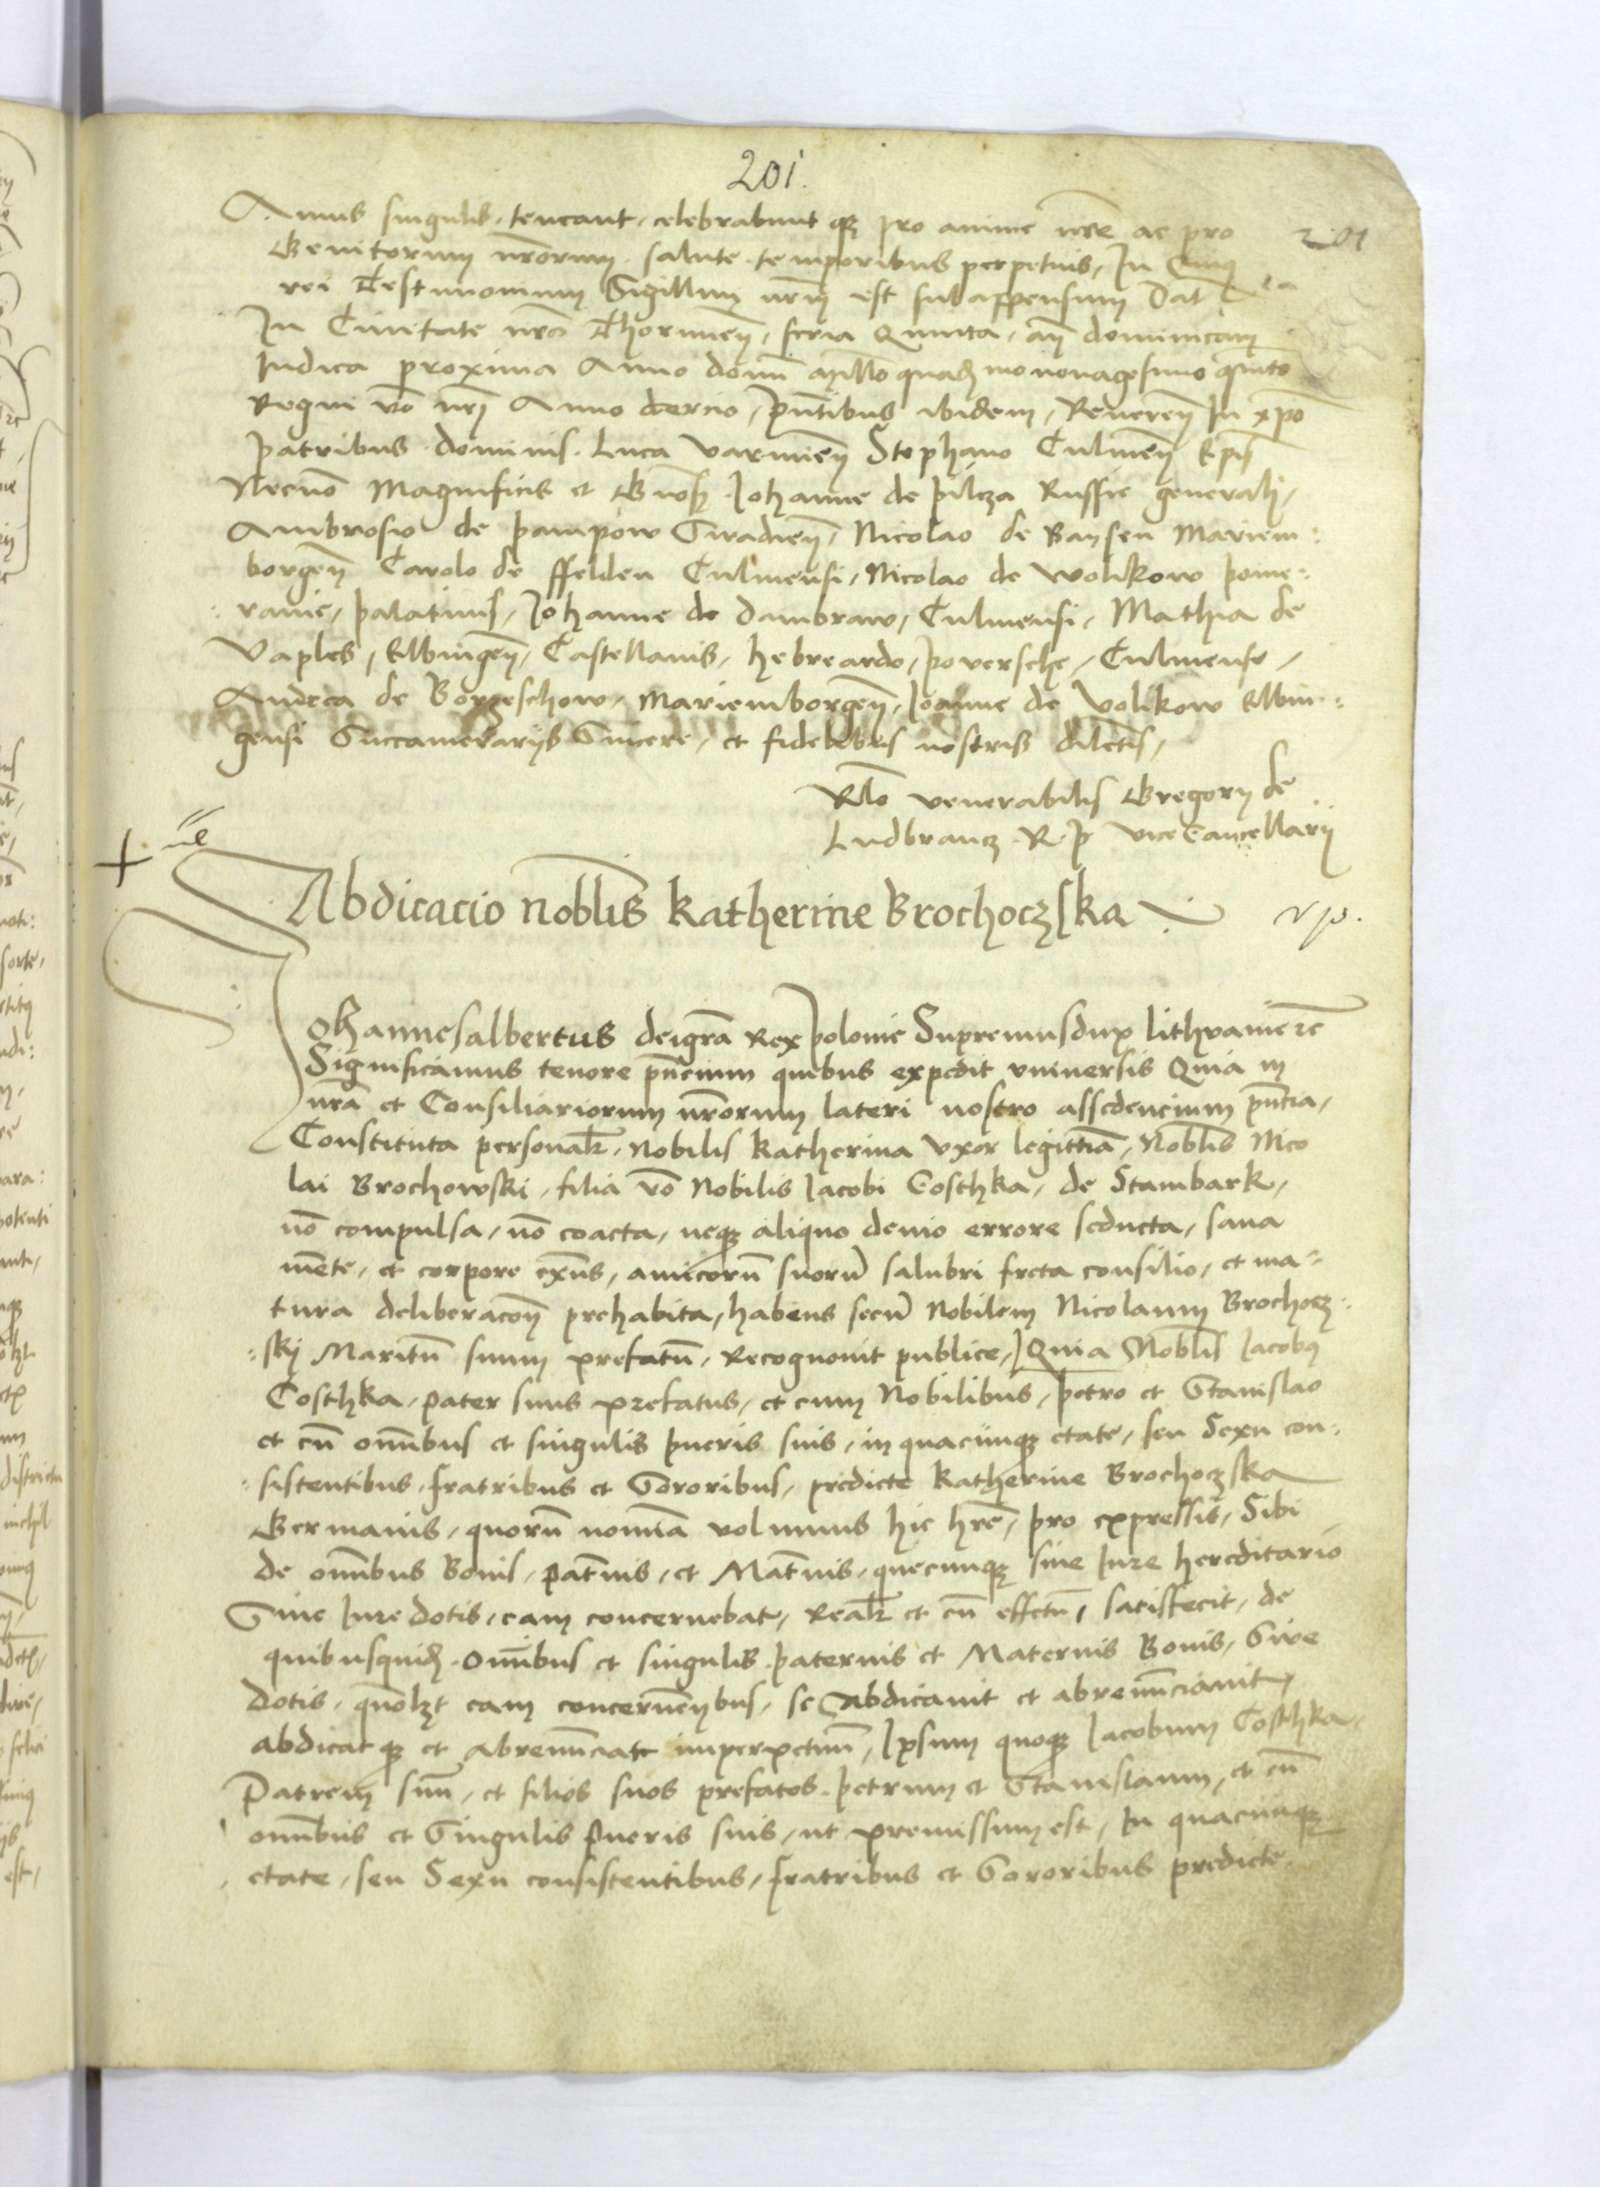 201.
Annis singulis, teneant, celebrabunt qȝ pro anime nr̃e ac pro
201
Genitorum nr̃orum salute temporibus perpetuis, In Cuius
rei Testimonium Sigillum nr̃m est subappensum Dat
In Civitate nr̃a Thorunen̄, feria Quinta, an̄ dominicam
Iudica proxima Anno domī Mill̄o quadringmo nonagesimo quīto
Regni v̄o nr̃i Anno tercio, pñtibus ibidem, Reveren̄ In xp̄o
patribus dominis Luca Varmien̄ Stephano Culmen̄ Ep̄is
Necnō Magnificis et Gñosis Iohanne de Pilcza Russie generali,
Ambrosio de Pampow Siradien̄, Nicolao de Baysen Mariem:
borgen̄ Carolo de ffelden Culmensi, Nicolao de Wolikow Pome:
:ranie, palatinis, Iohanne de Dambraw, Culmensi, Mathia de
Vaples, Elbingen̄, Castellanis, hebreardo, poversche, Culmense,
Andrea de Borzeschow, Mariemborgen̄, Ioanne de Volikow Elbin:
gensi Succamerarijs Sincere, et fidelibus nostris dilectis,
Rl̄o venerabilis Gregorij de
Ludbrancz R P Vice Cancellarij
Abdicacio nobl̄is Katherine Brochoczska
Iohannesalbertus deigr̃a Rex Polonie Supremusdux lithvanie zc̄
Significamus tenore pñcium quibus expedit vniversis Quia in
nr̃a et Consiliariorum nr̃orum lateri nostro assedencium pñtia,
Constituta personalr̃, Nobilis Katherina Vxor legittīa, Nobl̄is Nico
lai Brochowski, filia v̄o Nobilis Iacobi Costhka, de Stambark,
nō compulsa, nō coacta, neqȝ aliquo devio errore seducta, sana
mēte, et corpore exn̄s, amicorū suorū salubri freta consilio, et ma:
tura deliberacōn̄ prehabita, habens secū Nobilem Nicolaum Brochocz:
:skj Maritū suum prefatū, Recognovit publice, Quia Nobl̄is Iacobus
Costhka, pater suus prefatus, et cum Nobilibus, Petro et Stanislao
et cū om̄ibus et singulis pueris suis, in quacunqȝ etate, seu Sexu con:
:sistentibus, fratribus et Sororibus, predicte Katherine Brochoczska
Germanis, quorū nomīa volumus hic hr̃e, pro expressis, Sibi
de om̄ibus Bonis, pat̄nis, et Mat̄nis, quecunqȝ sive Iure hereditario
Sive Iure dotis, eam concernebat, Realr̃ et cū effectu, satisfecit, de
quibusquid om̄ibus et singulis paternis et Maternis Bonis, Sive
dotis, quōlȝt eam concernen̄bus, se abdicavit et abrenūnciavit,
abdicat qȝ et abrenūnciat imperpetuū, Ipsum quoqȝ Iacobum Costhka,
Patrem suū, et filios suos prefatos Petrum et Stanislaum, et cū
om̄ibus et Singulis Pueris suis, ut premissum est, In quacunqȝ
etate, seu Sexu consistentibus, fratribus et Sororibus predicte